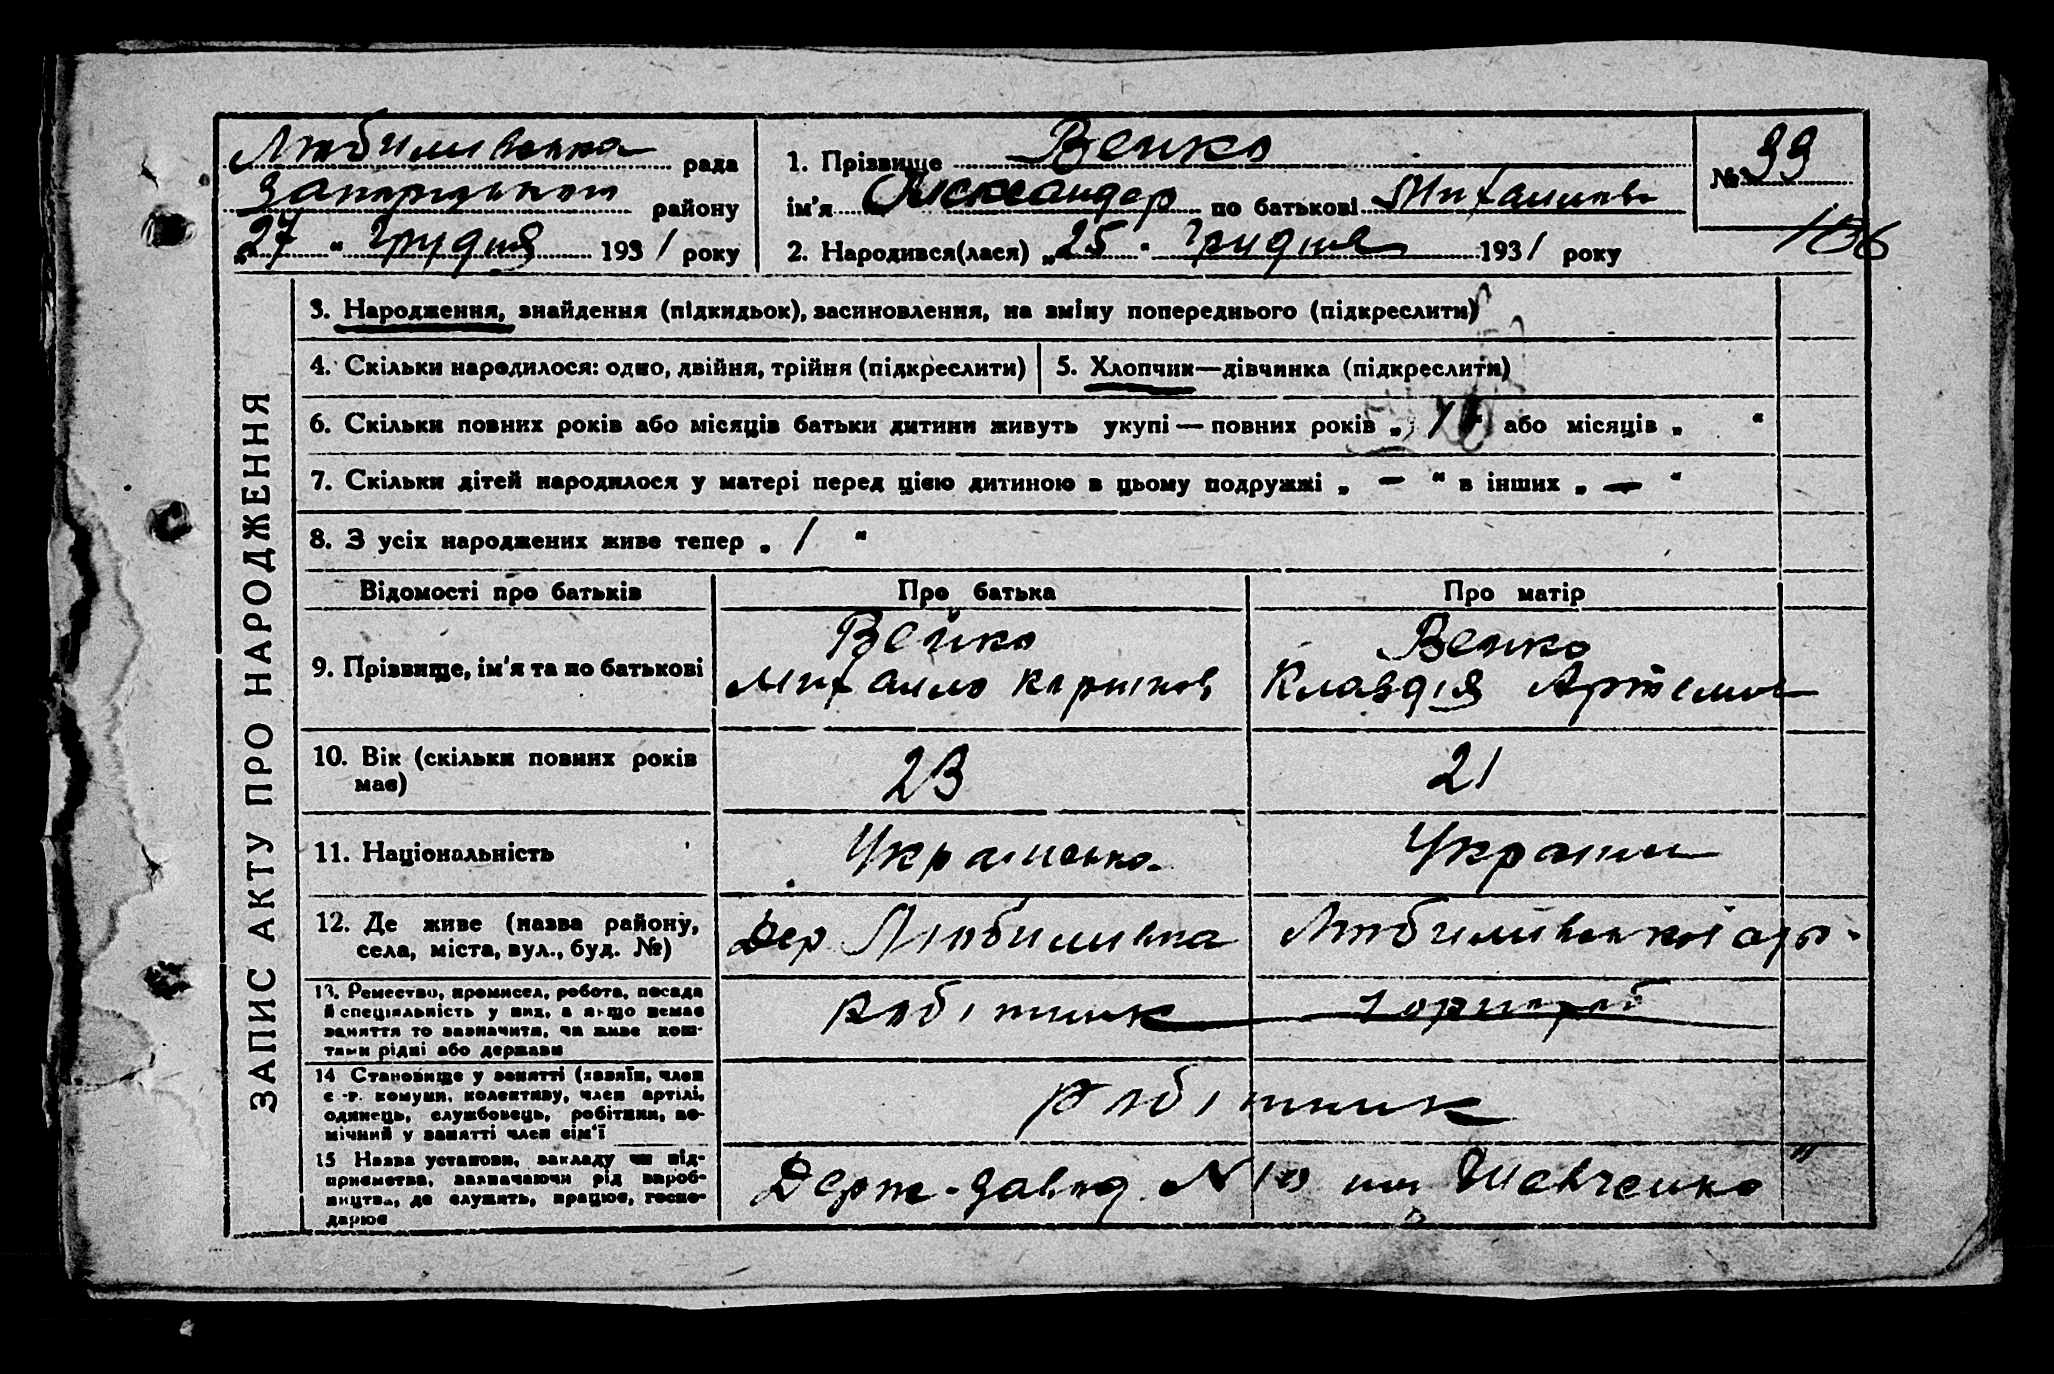 Любимивська рада
Запорізького району
„27“ Грудня 1931 року
1. Прізвище Вейко
ім'я Александер по батькові Михаилов
2. Народився(лася) „25“ Грудня 1931 року
№ 99
106
ЗАПИС АКТУ ПРО НАРОДЖЕННЯ
3. Народження, знайдення (підкидьок), засиновлення, на зміну попереднього (підкреслити)
4. Скільки народилося: одно, двійня, трійня (підкреслити)
5. Хлопчик—дівчинка (підкреслити)
6. Скільки повних років або місяців батьки дитини живуть укупі — повних років „ або місяців „ “
7. Скільки дітей народилося у матері перед цією дитиною в цьому подружжі „ — “ в інших „ — “
8. З усіх народжених живе тепер „ 1 “
Відомості про батьків
Про батька
Про матір
9. Прізвище, ім'я та по батькові
Вейко
Михаило
Вейко
Клавдія Артемов
10. Вік (скільки повних років
має)
23
21
11. Національність
Українська
Україн
12. Де живе (назва району,
села, міста, вул., буд. №)
Дер Любимивка
Любимивської
13. Ремество, промисел, робота, посада
й спеціяльність у них, а якщо немає
заняття то зазначити, чи живе кош-
тами рідні або держави
Робітник
14 Становище у занятті (хазяїн, член
с.-г. комуни, колективу, член артілі,
одинець, службовець, робітник, по-
мічний у занятті член сім'ї
Робітник
15 Назва установи, закладу чи під-
приємства, зазначаючи рід вироб-
ництва, де служить, працює, госпо-
дарює
Держ. завод № 10 им Шевченко "